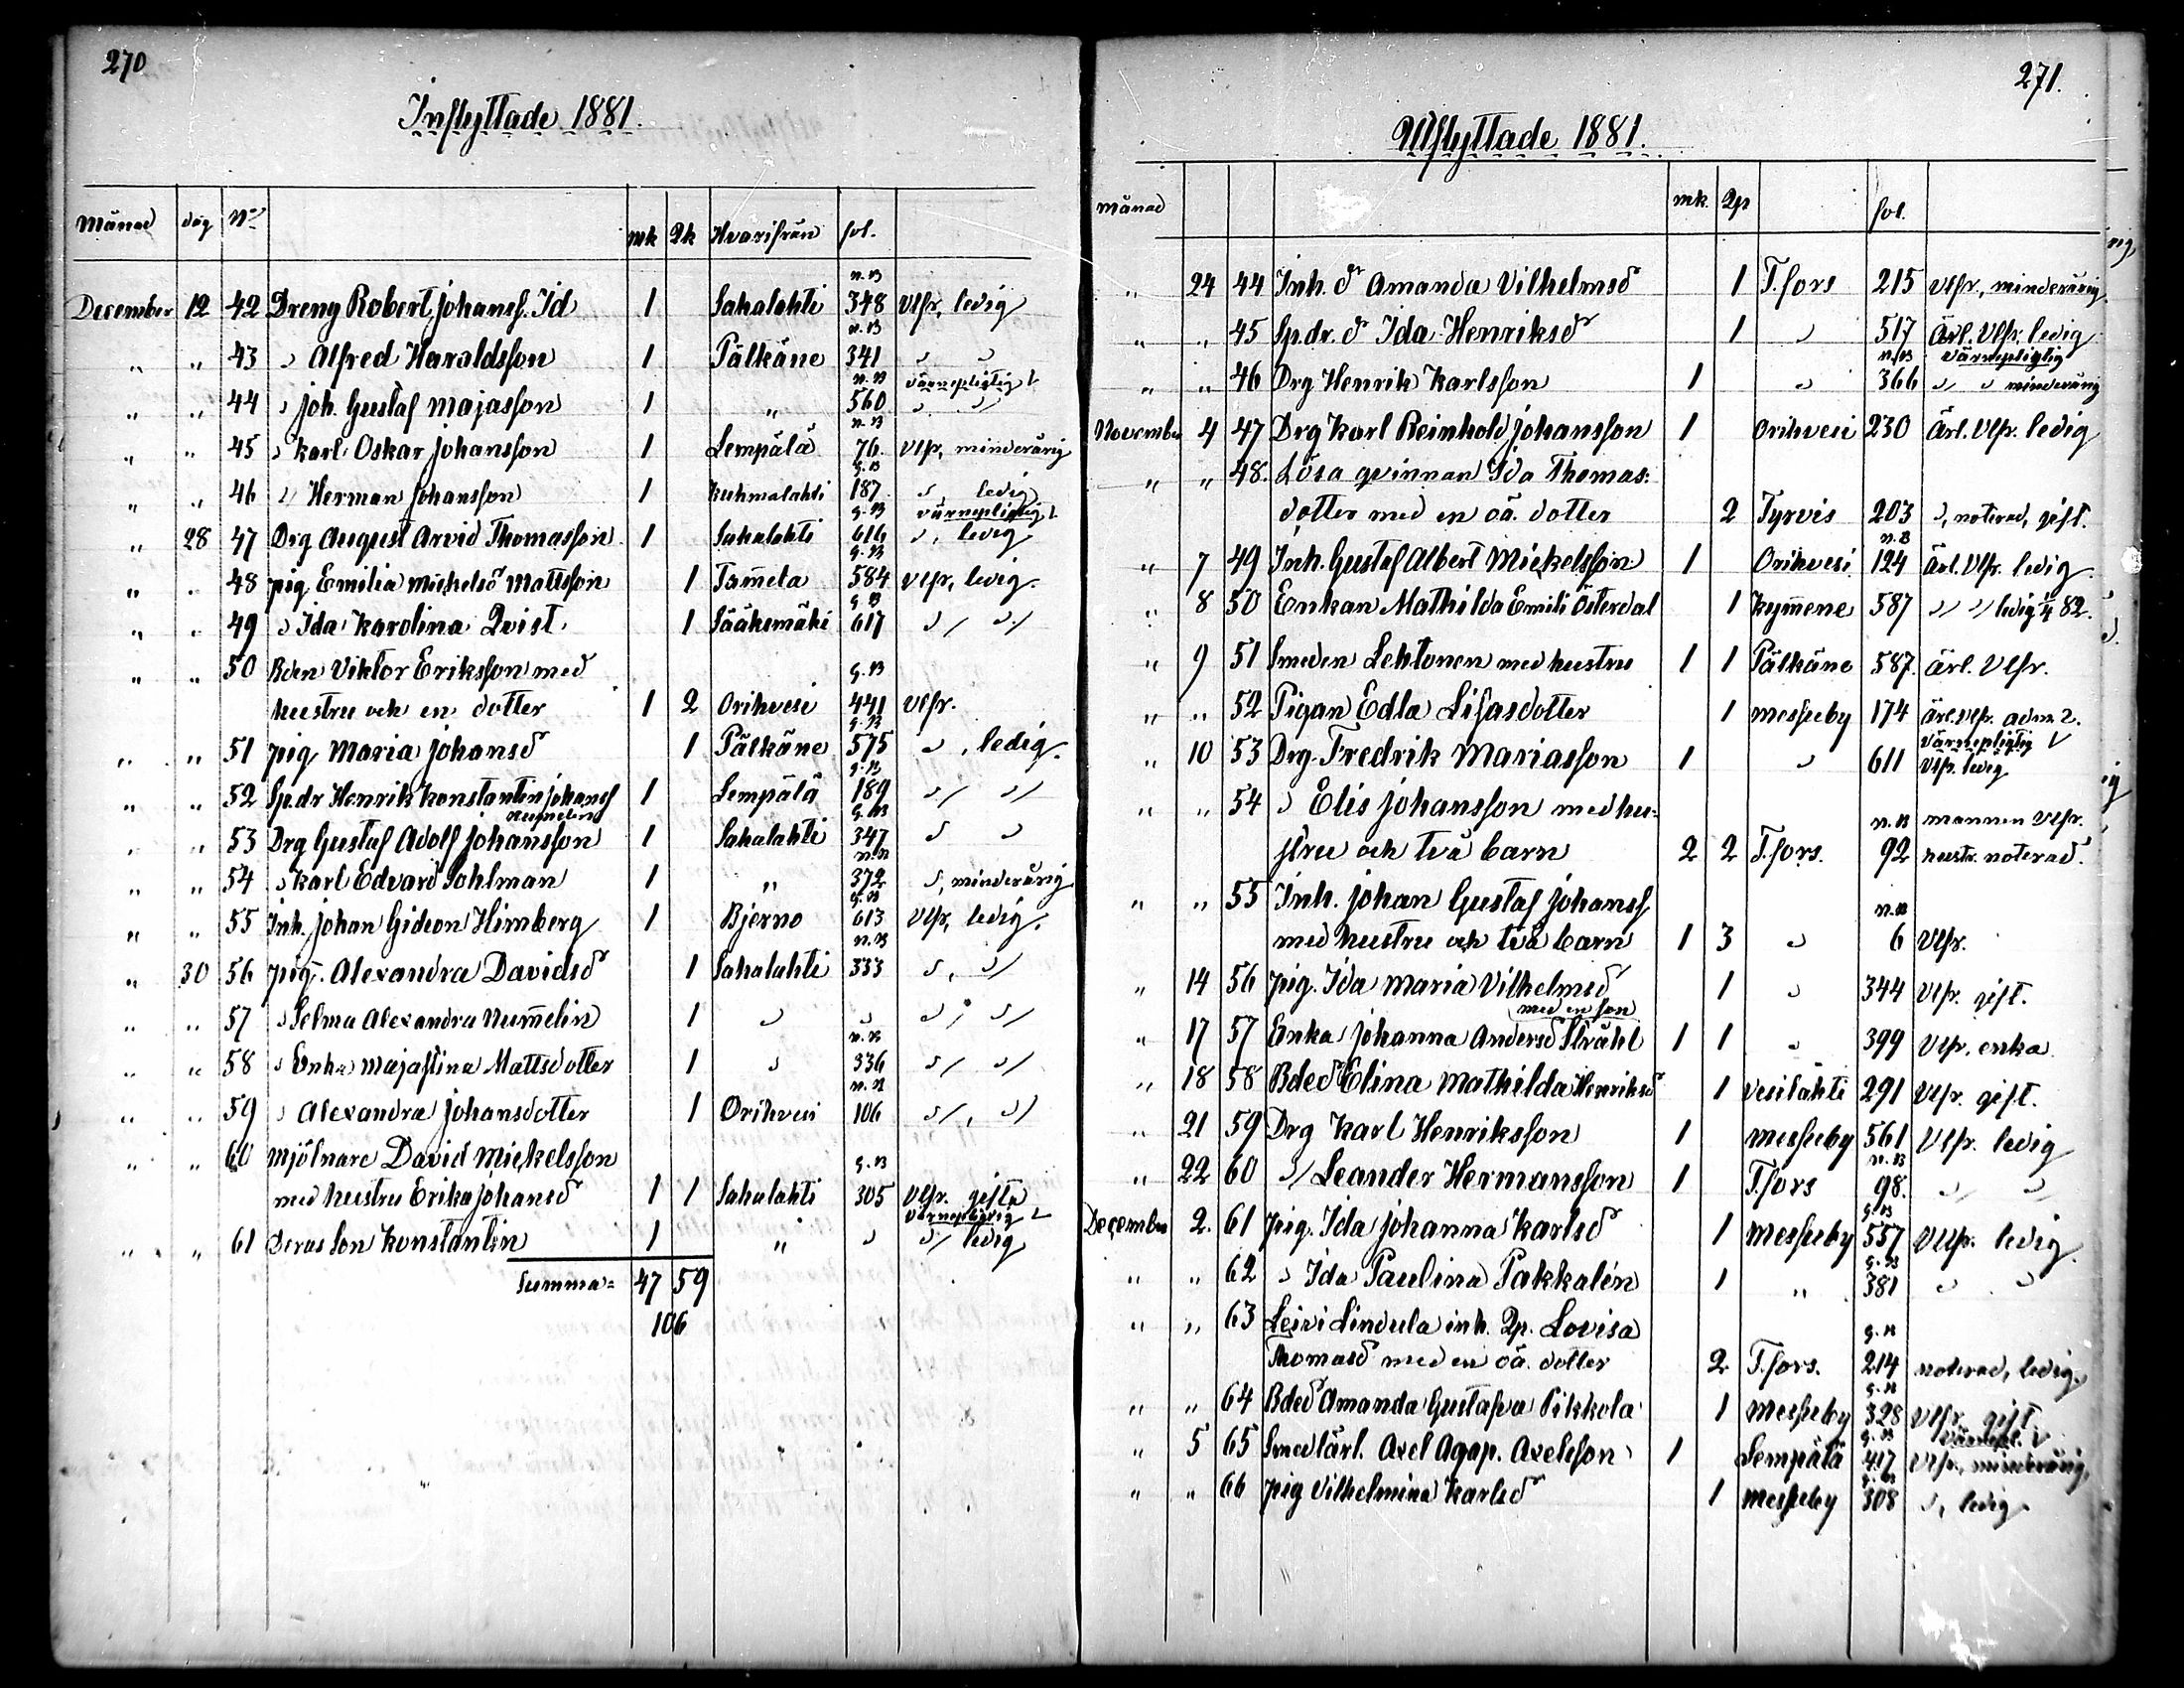 270
Inflyttade 1881.
Månad dag No mk Qk Hvarifrån fol.
n.B
December 12 42 Dreng Robert Johanss. Id 1 Sahalahti 348 Vlfr, ledig
n.B
" " 43 " Alfred Haraldsson 1 Pälkäne 341 " "
n.B värnepligtig
" " 44 " Joh. Gustaf Majasson 1 " 560 " "
n.B
" " 45 " Karl Oskar Johansson 1 Lempälä 76. Vlfr, minderårig
g.B
" " 46 " Herman Johansson 1 Kuhmalahti 187 " ledig
g.B värnepligtig
" 28 47 Drg August Arvid Thomasson 1 Sahalahti 616 ", ledig
g.B
" " 48 pig Emilia Mickelsd Mattsson 1 Tam̅ela 584 Vlfr, ledig.
g.B
" " 49 " Ida Karolina Qvist 1 Sääksmäki 617 " "
" " 50 Bden Viktor Eriksson med g.B
hustru och en dotter 1 2 Orihvesi 441 Vlfr.
g.B
" " 51 pig Maria Johansd 1 Pälkäne 575 ", ledig.
g.B
" " 52 Sp.dr Henrik Konstantin Johanss 1 Lempälä 189 " "
Num̅elin g.B
" " 53 Drg Gustaf Adolf Johansson 1 Sahalahti 347 " "
n.B
" " 54 " Karl Edvard Sohlman 1 " 372 ", minderårig
g.B
" " 55 Inh. Johan Gideon Himberg 1 Bjerno 613 Vlfr, ledig.
n.B
" 30 56 pig. Alexandra Davidsd 1 Sahalahti 333 ", "
" " 57 " Selma Alexandra Num̅elin 1 " " " "
n.B
" " 58 " Enka Majastina Mattsdotter 1 " 336 " "
n.B
" " 59 " Alexandra Johansdotter 1 Orihvesi 106 ", "
" " 60 Mjölnare David Mickelsson g.B
med hustru Erika Johansd 1 1 Sahalahti 305 Vlfr. gifta
värnepligtig
" " 61 Deras son Konstantin 1 " " " ledig
Summa= 47 59
106
271.
Utflyttade 1881.
Månad mk. Qp fol.
" 24 44 Inh. dr Amanda Vilhelmsd 1 T.fors 215 Vlfr, minderårig
" " 45 Sp.dr. dr Ida Henriksd 1 " 517 Ärl. Vlfr. ledig
n.B värnepligtig
" " 46 Drg Henrik Karlsson 1 " 366 " " minderårig
November 4 47 Drg Karl Reinhold Johansson 1 Orihvesi 230 Ärl. Vlfr. ledig
" " 48. Lösa qvinnan Ida Thomas:
dotter med en oä. dotter 2 Tyrvis 203 ", noterad, gift.
n.B
" 7 49 Inh. Gustaf Albert Mickelsson 1 Orihvesi 124 Ärl. Vlfr. ledig
" 8 50 Enkan Mathilda Emili Österdal 1 Kym̅ene 587 " " ledig 82.
" 9 51 Smeden Lehtonen med hustru 1 1 Pälkäne 587. Ärl. Vlfr.
" " 52 Pigan Edla Lisasdotter 1 Messuby 174 Ärl. Vlfr. adm 2.
värnepligtig
" 10 53 Drg. Fredrik Mariasson 1 " 611 Vlfr. ledig
" " 54 " Elis Johansson med hu- n.B mannen Vlfr.
stru och två barn 2 2 T.fors. 92 hustr. noterad.
" " 55 Inh. Johan Gustaf Johanss n.B
med hustru och två barn 1 3 " 6 Vlfr.
" 14 56 pig. Ida Maria Vilhelmsd 1 " 344 Vlfr. gift.
med en son
" 17 57 Enka Johanna Andersd Stråhl 1 1 " 399 Vlfr. enka
" 18 58 Bded Elina Mathilda Henriksd 1 Vesilahti 291 Vlfr. gift.
" 21 59 Drg Karl Henriksson 1 Messuby 561 Vlfr. ledig
n.B
" 22 60 " Leander Hermansson 1 T.fors 98. " "
g.B
December 2. 61 pig. Ida Johanna Karlsd 1 Messuby 557 Vlfr. ledig
g.B
" " 62 " Ida Paulina Pakkalén 1 " 381 " "
" " 63 Leivi Lindula inh. Qp. Lovisa g.B
Thomasd med en oä. dotter 2 T.fors. 214 noterad, ledig.
g.B
" " 64 Bded Amanda Gustafva Pikkola 1 Messuby 328 Vlfr gift.
g.B värnepl.
" 5 65 Smedlärl. Axel Agap. Axelsson 1 Lempälä 417 Vlfr, minderårig
g.B
" " 66 pig Vilhelmina Karlsd 1 Messuby 308 ", ledig